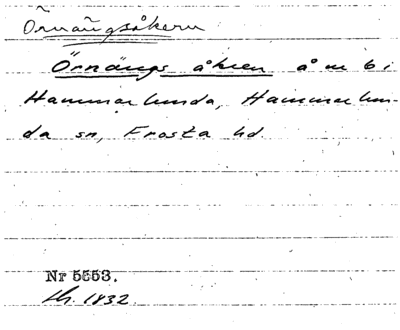 Örnängsåkern
Örnängs åkren å nr 6 i
Hammarlunda, Hammarlun-
da sn, Frosta hd.
Nr 5553.
th. 1832.